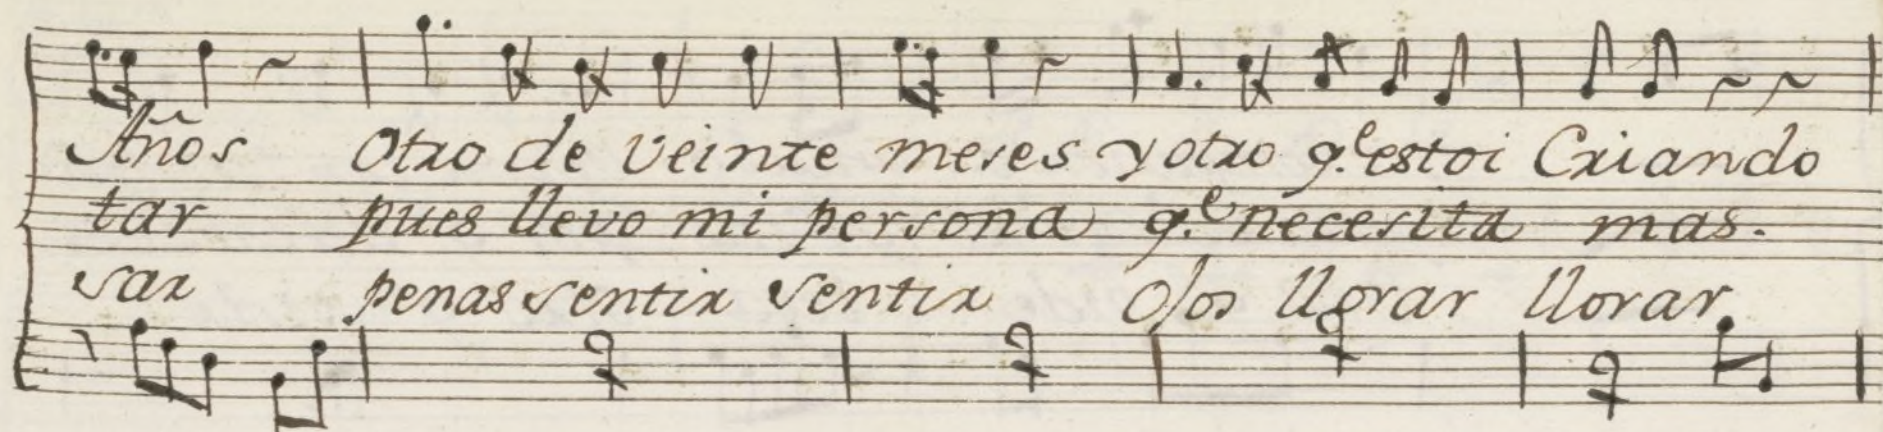 Años otro de veinte meses y otro q.e estoi Criando
tar pues llevo mi persona q.e necesita mas.
sar penas sentir sentir Ojos llorar llorar